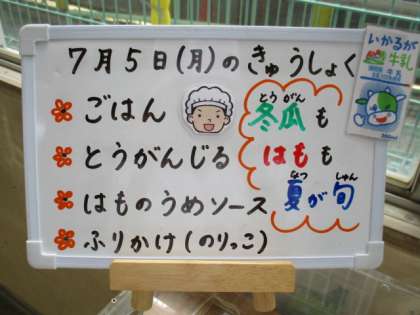 7月5日(月)のきゅうしょく
ごはん
とうがんじる
はものうめソース
ふりかけ(のりっこ)
とうがん
冬瓜も
はもも
なつ しゅん
夏が旬
いかるが
牛乳